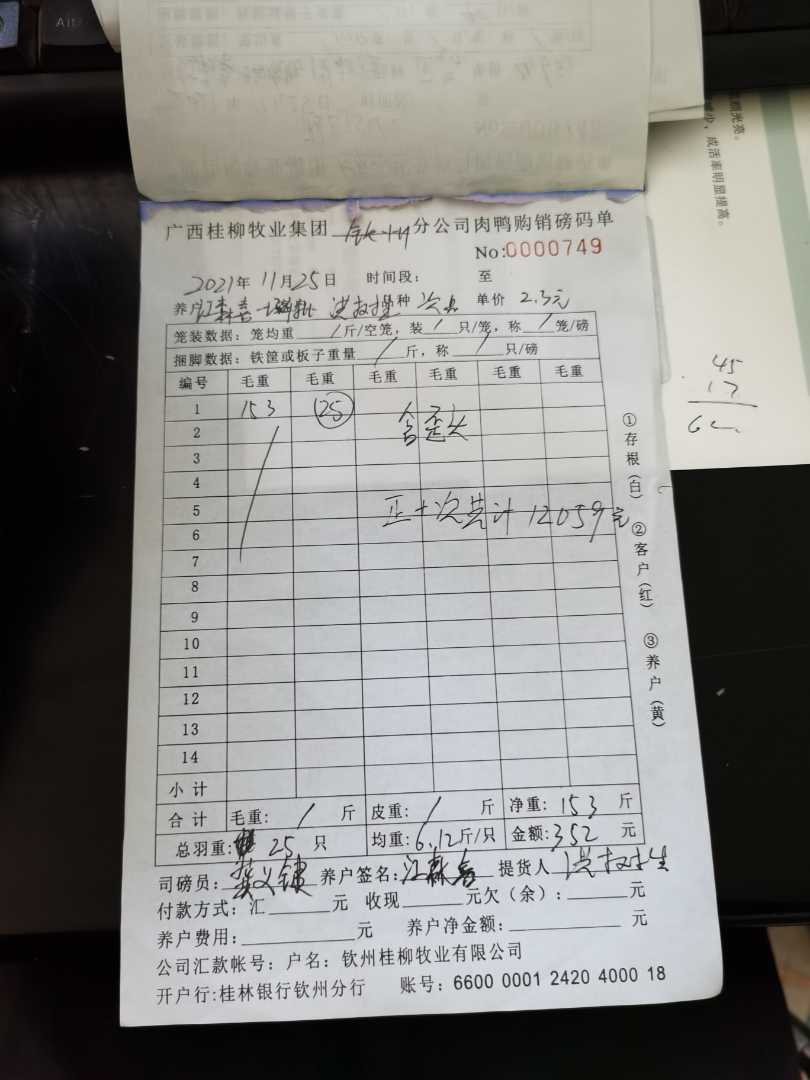 Alt
广西桂柳牧业集团 钦州 分公司肉鸭购销磅码单
No:0000749
2021年11月25日 时间段: 至
养户 江森春 种 次品 单价 2.3元
笼装数据:笼均重 / 斤/空笼,装 / 只/笼,称 / 笼/磅
捆脚数据:铁筐或板子重量 / 斤,称 / 只/磅
编号 毛重 毛重 毛重 毛重 毛重 毛重
1 153 25 含歪头
2
3
4
5 正+次共计12059元
6
7
8
9
10
11
12
13
14
小计
合计 毛重: / 斤 皮重: / 斤 净重: 153 斤
总羽重: 25 只 均重: 6.12斤/只 金额: 352 元
司磅员: 养户签名: 江森春 提货人
付款方式:汇 元 收现 元欠(余): 元
养户费用: 元 养户净金额: 元
公司汇款帐号:户名:钦州桂柳牧业有限公司
开户行:桂林银行钦州分行 账号:6600 0001 2420 4000 18
①存根(白) ②客户(红) ③养户(黄)
光亮。
少,成活率明显提高。
45
17